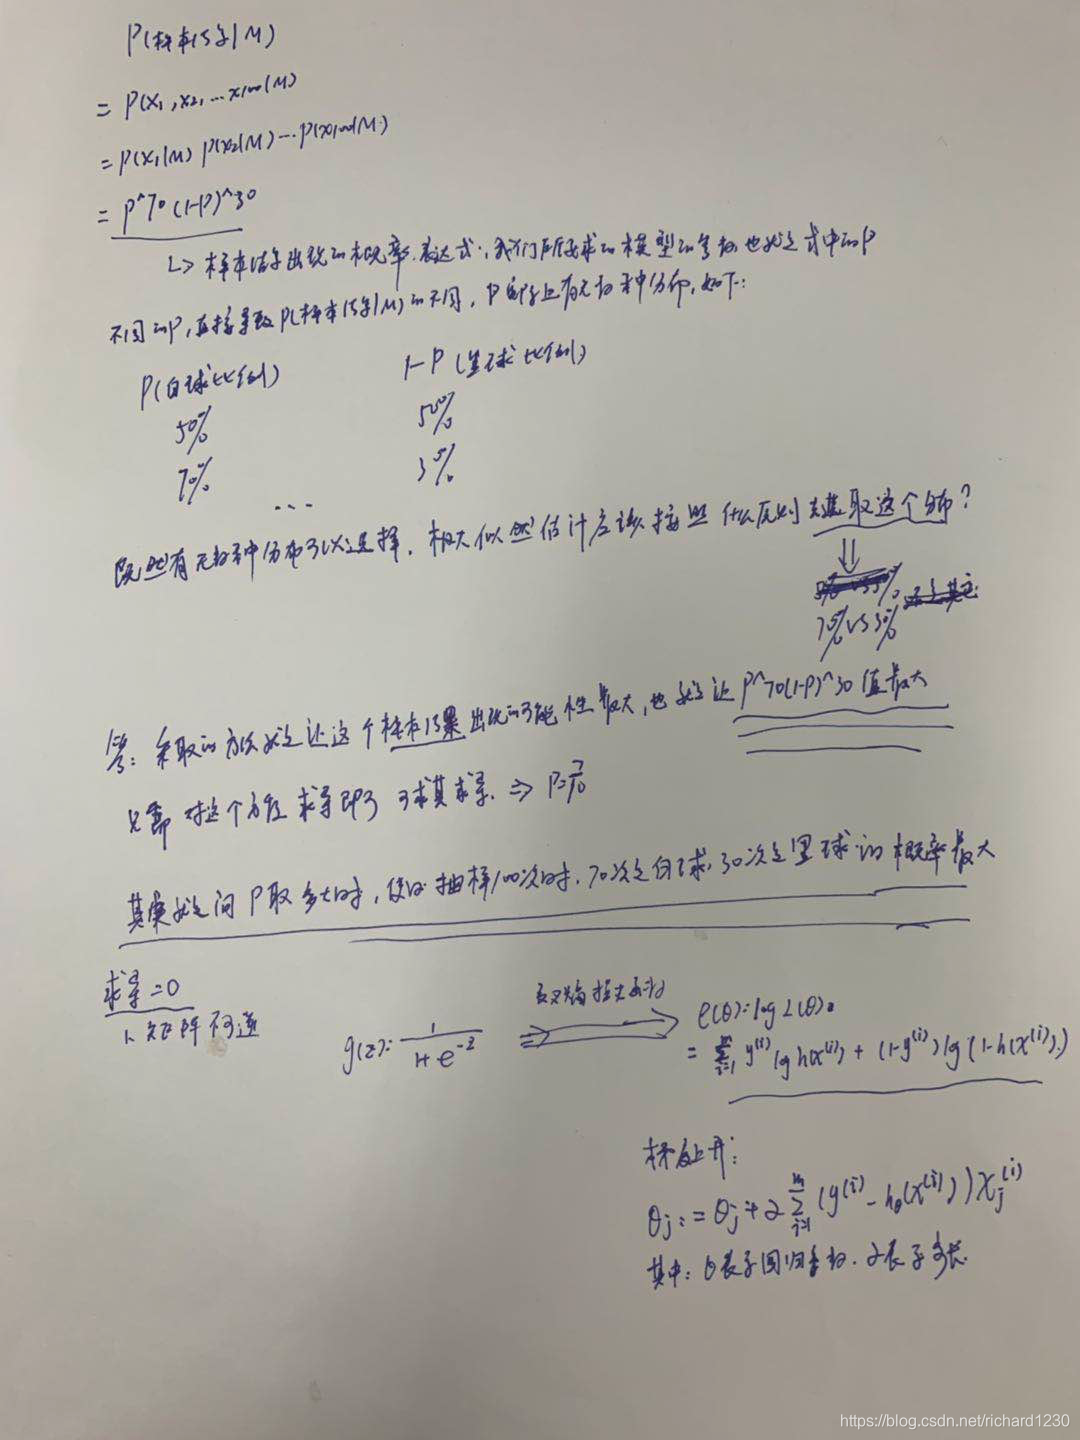 P(样本结果|M)
= P(x1,x2,...x100|M)
= P(x1|M) P(x2|M)...P(x100|M)
= P^70(1-P)^30
↳ 样本结果出现的概率表达式,我们所要求的模型的参数也就是式中的P
不同的P,直接导致P(样本结果|M)的不同,P实际上有无数种分布,如下:
P(白球比例) 1-P(黑球比例)
50% 50%
70% 30%
...
既然有无数种分布可以选择,极大似然估计应该按照什么原则去选取这个分布?
⇓
70% vs 30%
答:采取的方法是让这个样本结果出现的可能性最大,也就是让P^70(1-P)^30值最大
对这个方程求导即可 ⇒ P=7/10
其实就是问P取多大时,使得抽样100次时,70次是白球,30次是黑球的概率最大
求导=0
1. 矩阵不可逆
g(z)=1/(1+e^-z) ⇒ ℓ(θ)=log L(θ)=
= Σ(i=1..m) y^(i) lg h(x^(i)) + (1-y^(i)) lg(1-h(x^(i)))
梯度上升:
θj := θj + α Σ(i=1..m) (y^(i) - hθ(x^(i))) xj^(i)
其中:θ表示回归系数. α表示步长
https://blog.csdn.net/richard1230